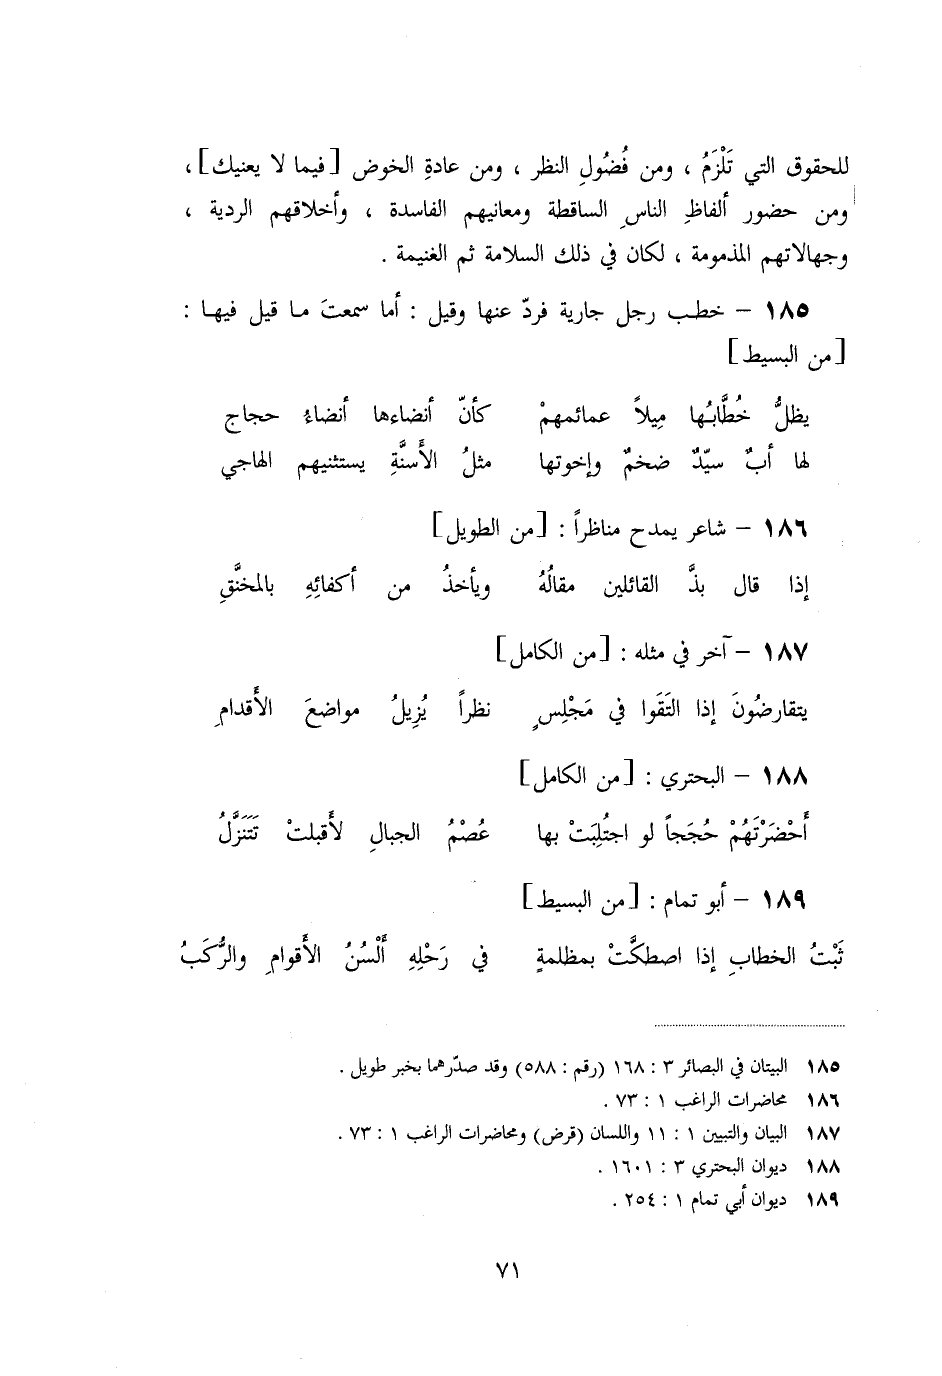 للحقوق التي تَلْزَمُ ، ومن فُضُولِ النظر ، ومن عادةِ الخوض [فيما لا يعنيك] ،
ومن حضور ألفاظِ الناسِ الساقطة ومعانيهم الفاسدة ، وأخلاقهم الردية ،
وجهالاتهم المذمومة ، لكان في ذلك السلامة ثم الغنيمة .
١٨٥ – خطب رجل جارية فردّ عنها وقيل : أما سمعتَ ما قيل فيها :
[من البسيط]
يظلُّ خُطَّابُها مِيلاً عمائمهمْ كأنّ أنضاءها أنضاءُ حجاج
لها أبٌ سيّدٌ ضخمٌ وإخوتها مثلُ الأَسنَّةِ يستثنيهم الهاجي
١٨٦ – شاعر يمدح مناظراً : [من الطويل]
إذا قال بذَّ القائلين مقالُهُ ويأخذُ من أكفائِهِ بالمخنَّقِ
١٨٧ – آخر في مثله : [من الكامل]
يتقارضُونَ إذا التَقَوا في مَجْلِسٍ نظراً يُزِيلُ مواضعَ الأَقدامِ
١٨٨ – البحتري : [من الكامل]
أَحْضَرْتَهُمْ حُجَجاً لو اجتُلِبَتْ بها عُصْمُ الجبالِ لأَقبلتْ تَتَنَزَّلُ
١٨٩ – أبو تمام : [من البسيط]
ثَبْتُ الخطابِ إذا اصطكَّتْ بمظلمةٍ في رَحْلِهِ أَلْسُنُ الأَقوامِ والرُّكَبُ
١٨٥ البيتان في البصائر ٣ : ١٦٨ (رقم : ٥٨٨) وقد صدّرهما بخبر طويل .
١٨٦ محاضرات الراغب ١ : ٧٣ .
١٨٧ البيان والتبيين ١ : ١١ واللسان (قرض) ومحاضرات الراغب ١ : ٧٣ .
١٨٨ ديوان البحتري ٣ : ١٦٠١ .
١٨٩ ديوان أبي تمام ١ : ٢٥٤ .
٧١